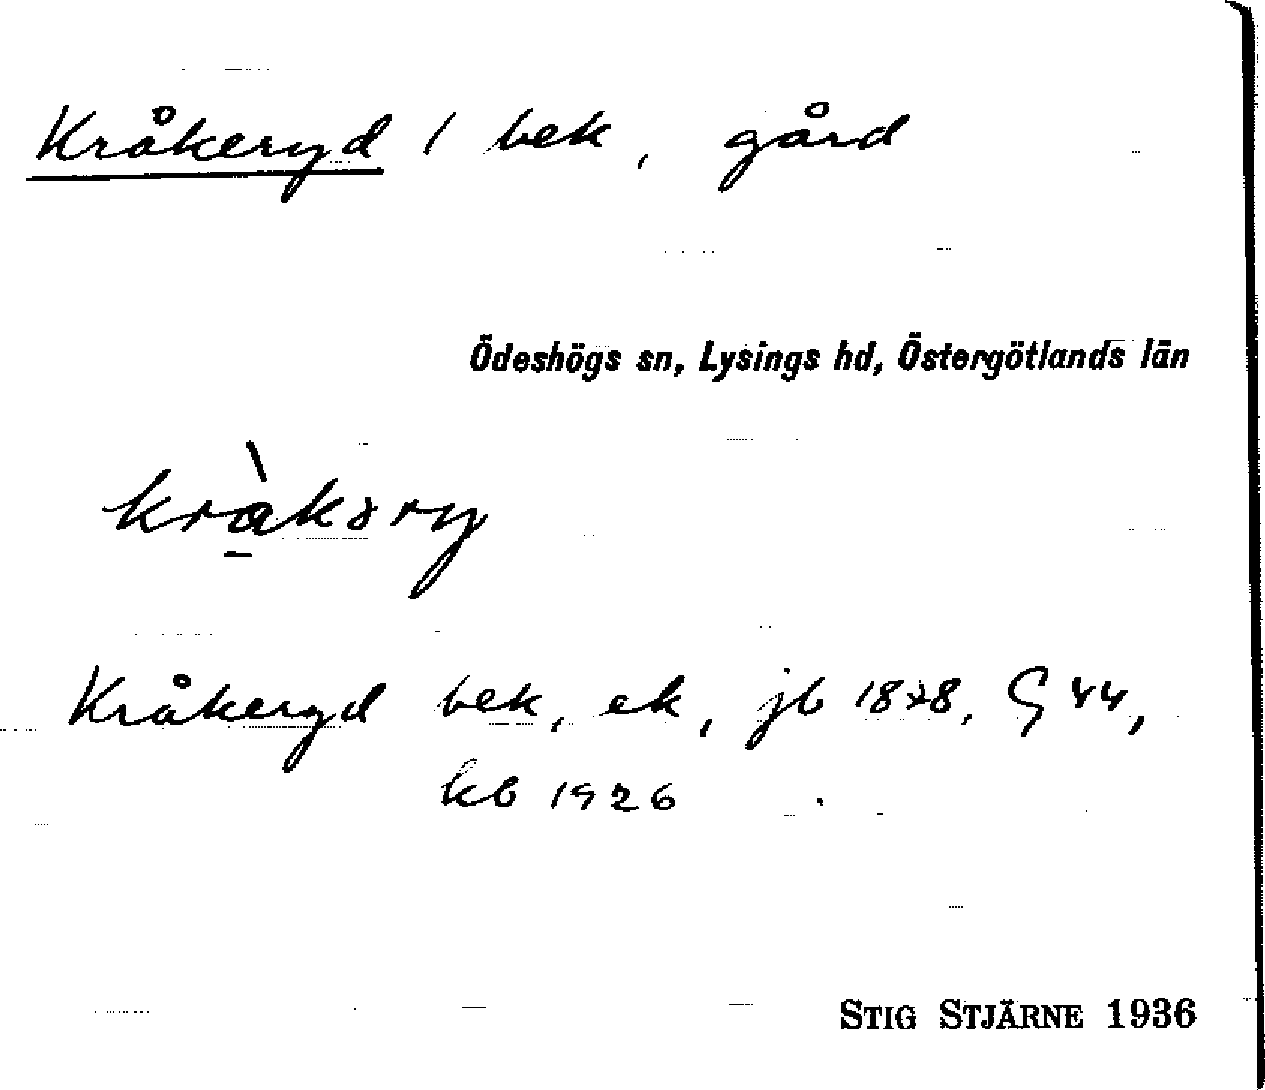 Kråkeryd / bek, gård
Ödeshögs sn, Lysings hd, Östergötlands län
kràkəry
Kråkeryd bek, ek, jb 1878, G 44,
kb 1926
STIG STJÄRNE 1936